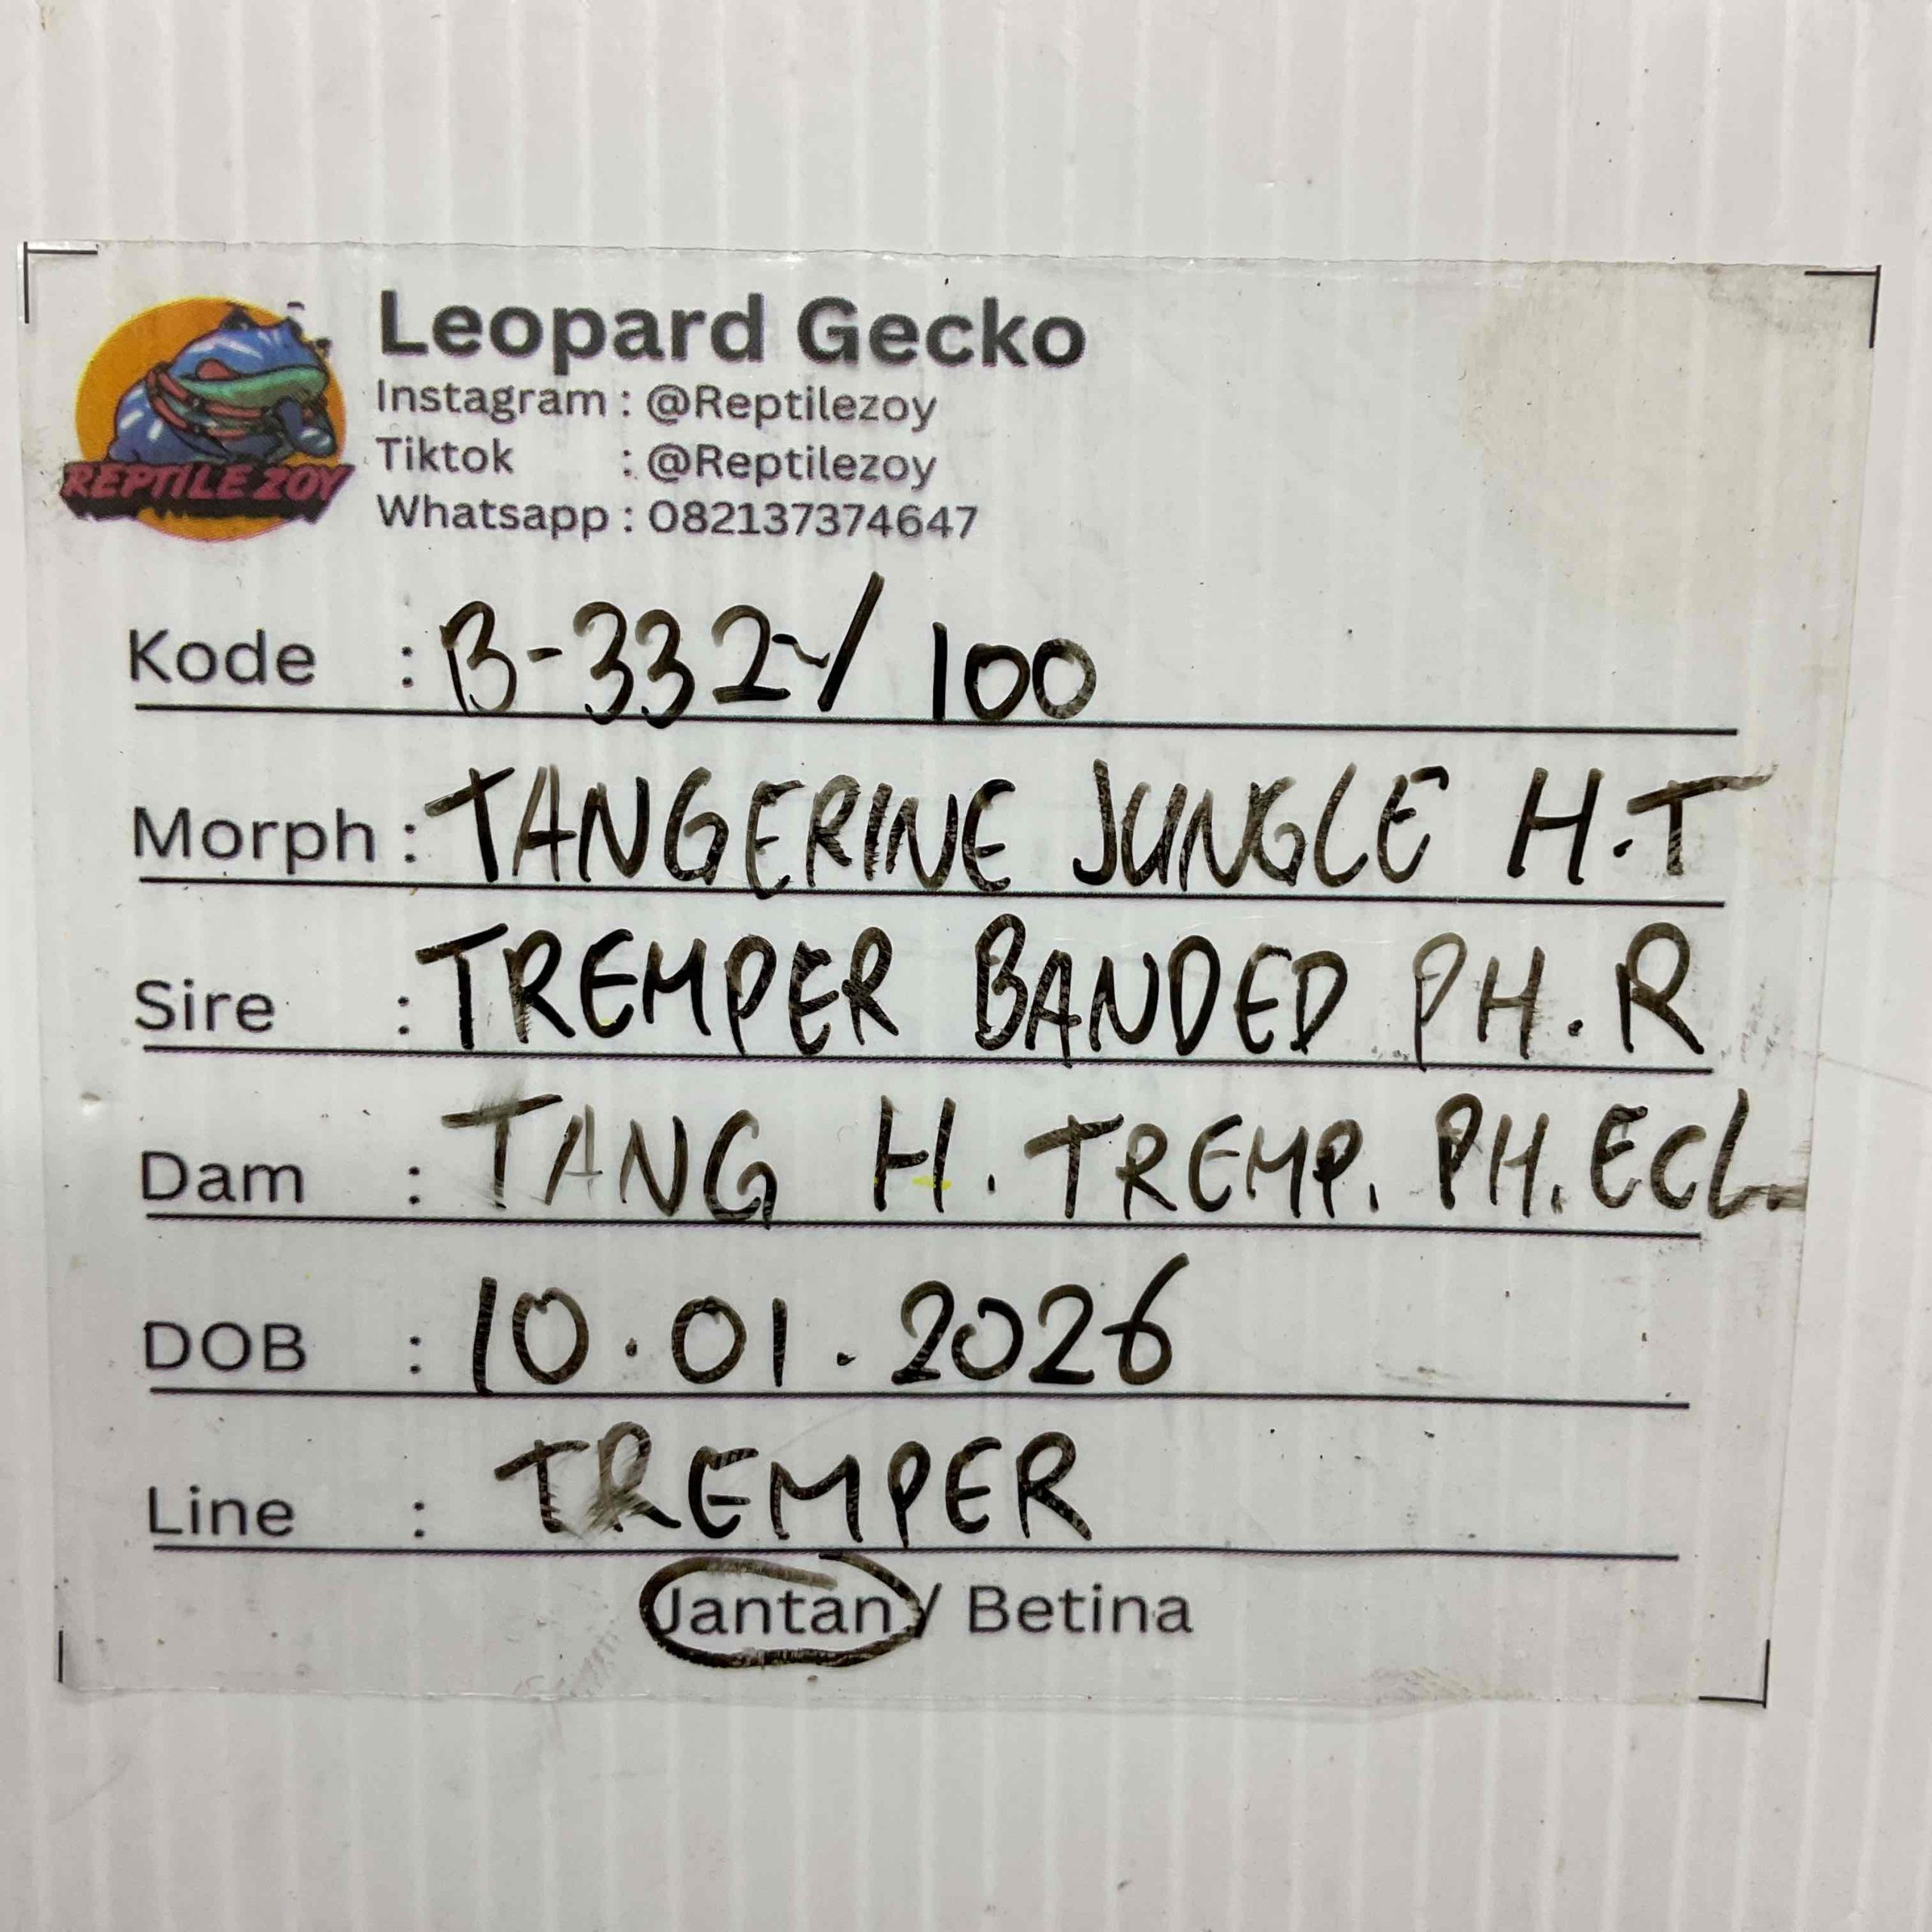 REPTILE ZOY
Leopard Gecko
Instagram : @Reptilezoy
Tiktok : @Reptilezoy
Whatsapp : 082137374647
Kode : B-332~/ 100
Morph : TANGERINE JUNGLE H.T
Sire : TREMPER BANDED PH.R
Dam : TANG H. TREMP. PH. ECL.
DOB : 10.01.2026
Line : TREMPER
Jantan / Betina